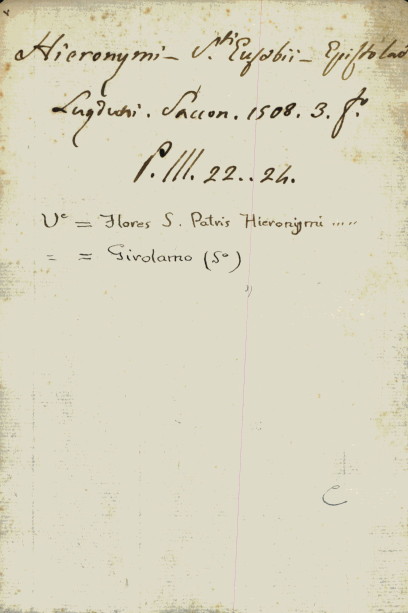 Hieronymi - S.ti Eusobii - Epistolae
Lugduni. Saccon. 1508. 3. f.o
P. III. 22.. 24.
Ve = Flores S. Patris Hieronijmi .....
= = Girolamo (So)
C